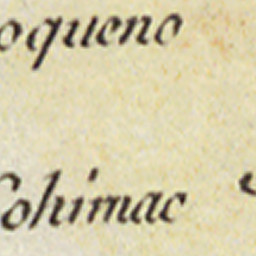 oqueno
Cohimac